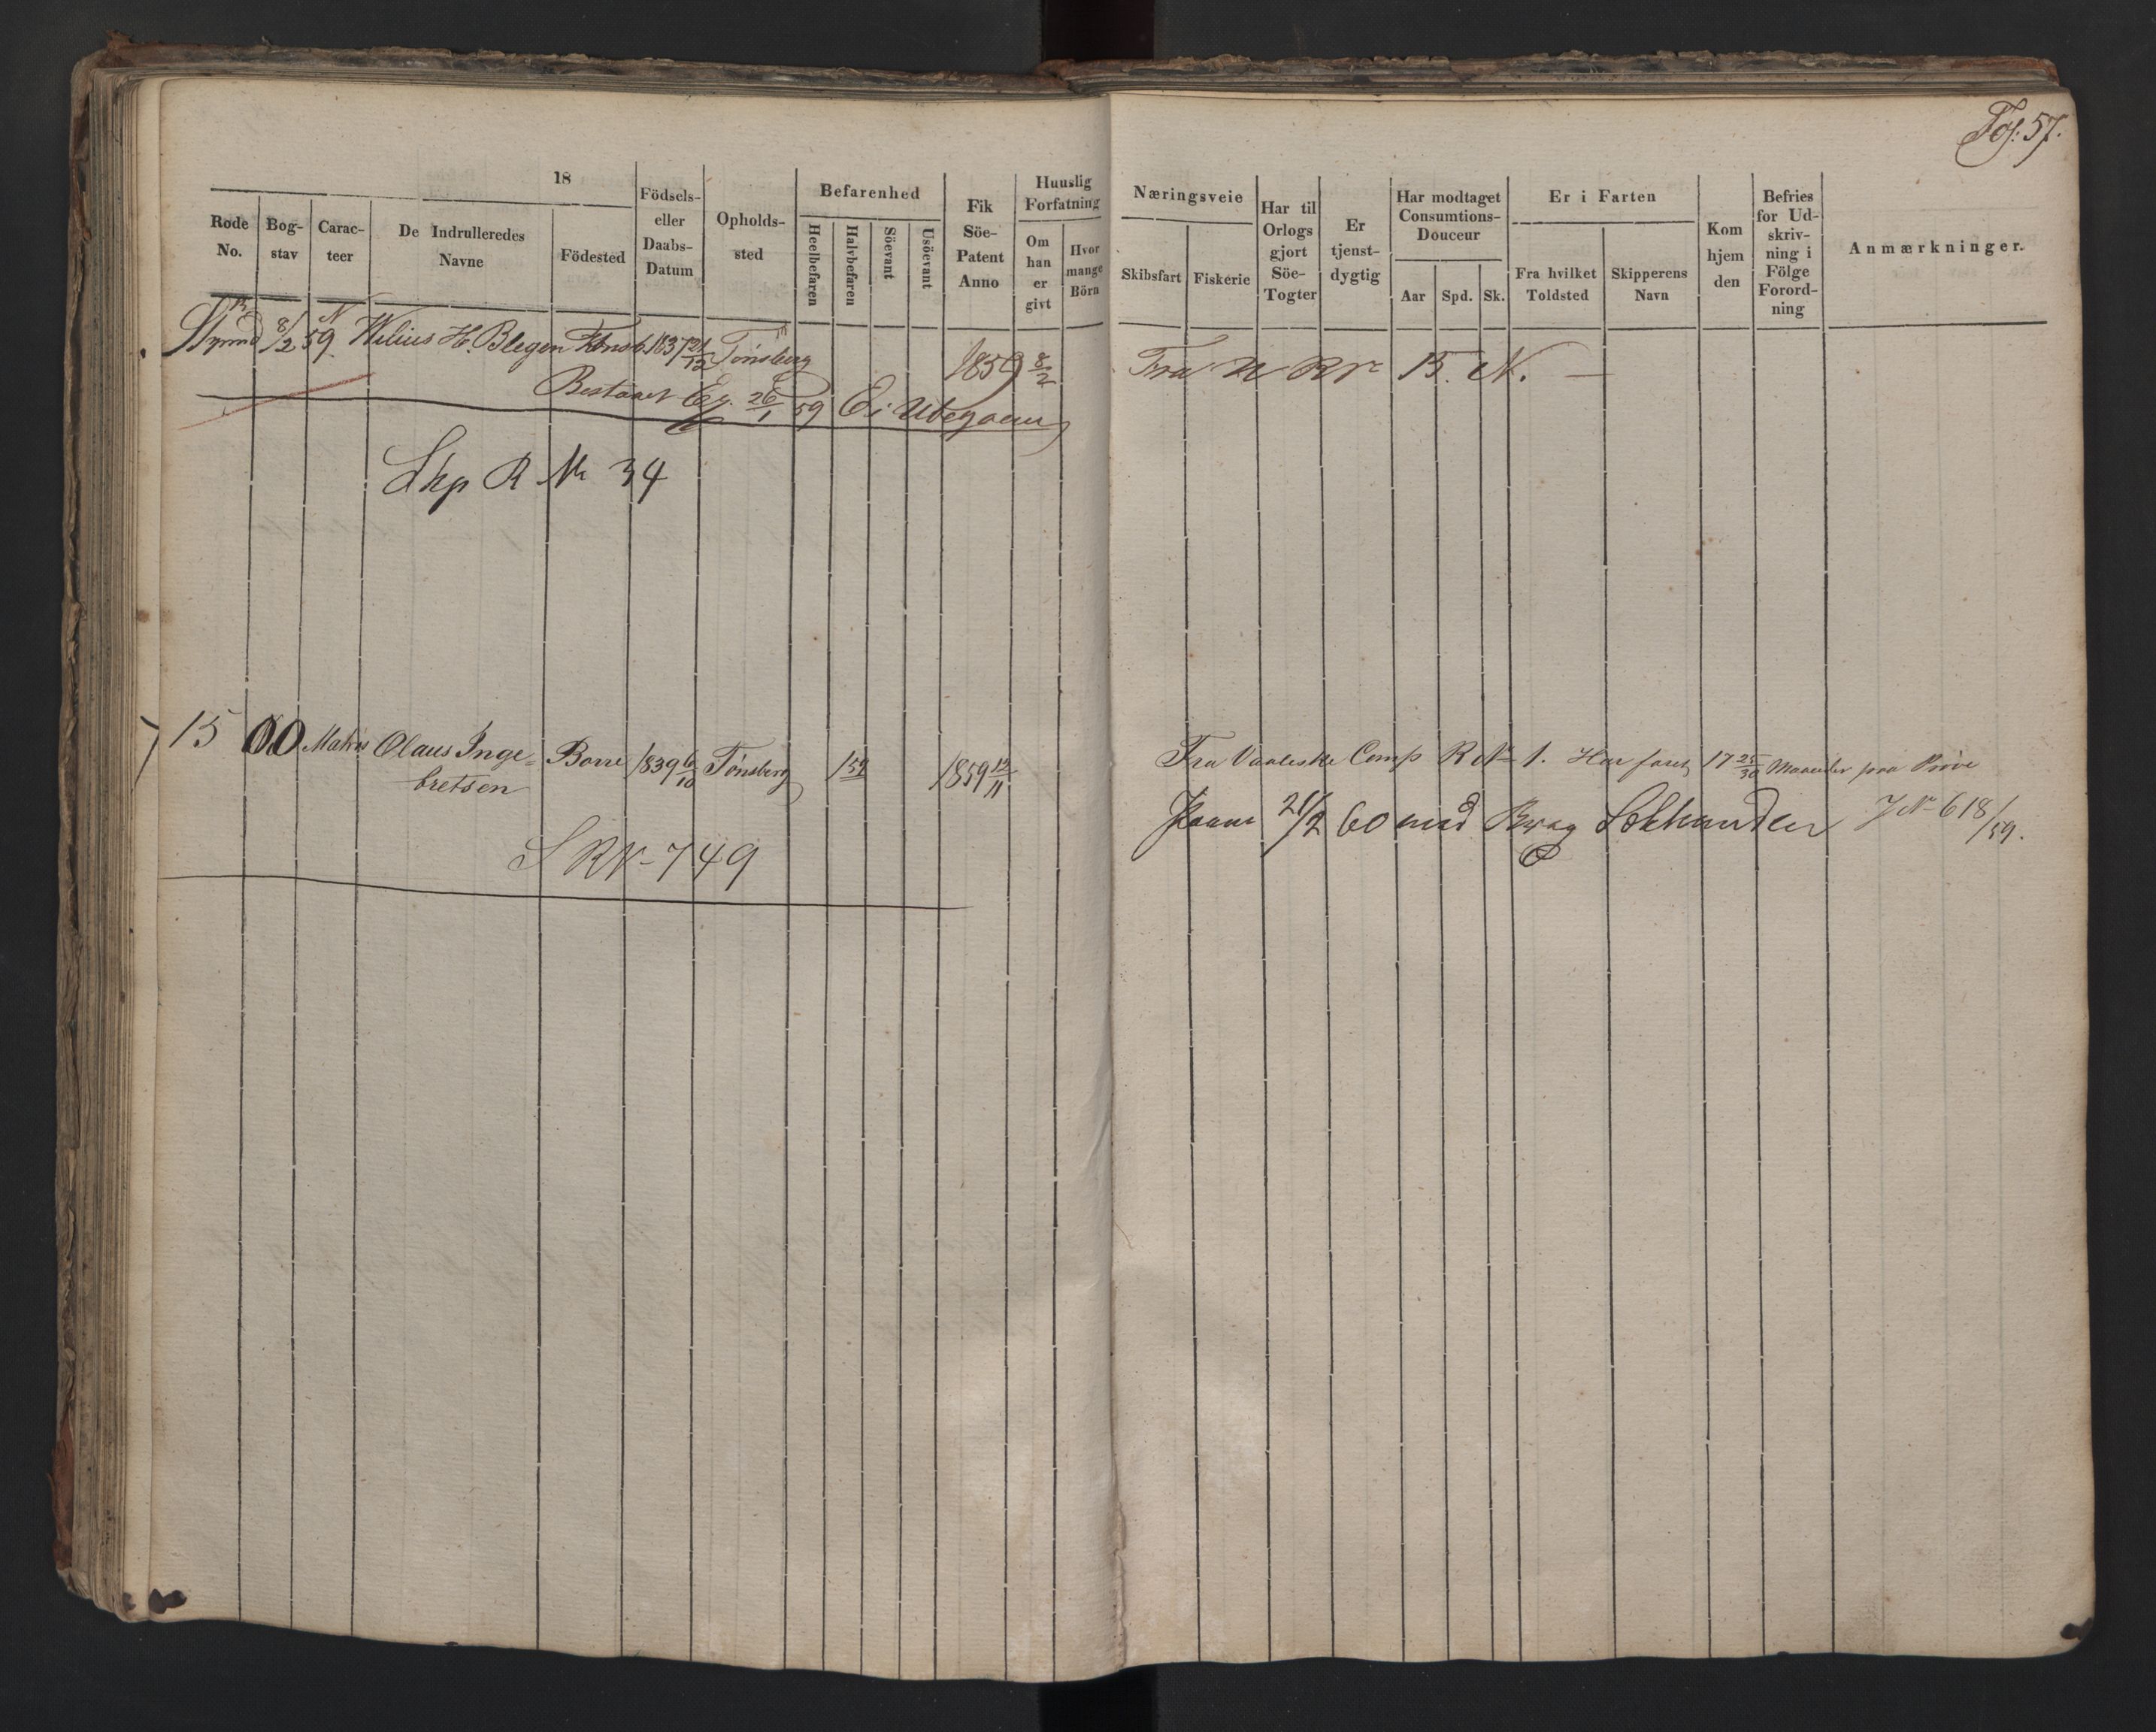 Fol: 57.
18
Rode No.
Bog-stav
Carac-teer
De Indrulleredes Navne
Födested
Födsels- eller Daabs-Datum
Opholds-sted
Befarenhed
Heelbefaren
Halvbefaren
Söevant
Usöevant
Fik Söe-Patent Anno
Huuslig Forfatning
Om han er givt
Hvor mange Börn
Næringsveie
Skibsfart
Fiskerie
Har til Orlogs gjort Söe-Togter
Er tjenst-dygtig
Har modtaget Consumtions-Douceur
Aar
Spd.
Sk.
Er i Farten
Fra hvilket Toldsted
Skipperens Navn
Kom hjem den
Befries for Ud-skriv-ning i Fölge Forord-ning
Anmærkninger.
Styrmd 8/2 59. Wilius H. Blegen 1837 21/12 Tønsberg 1859 8/2 Fra U R Nr 15. N. —
Bestaaet Ex. 26/1 59 Ei Udegaaen
Skp R Nr 34
15 00 Matros Olaus Inge= Borre 1839 6/10 Tønsberg 1 59 1859 12/11 Fra Vaaleske Comp R Nr 1. Har faret 17 25/30 Maaneder paa Prøve
bretsen
21/2 60 med JN 618/59.
S R N 749